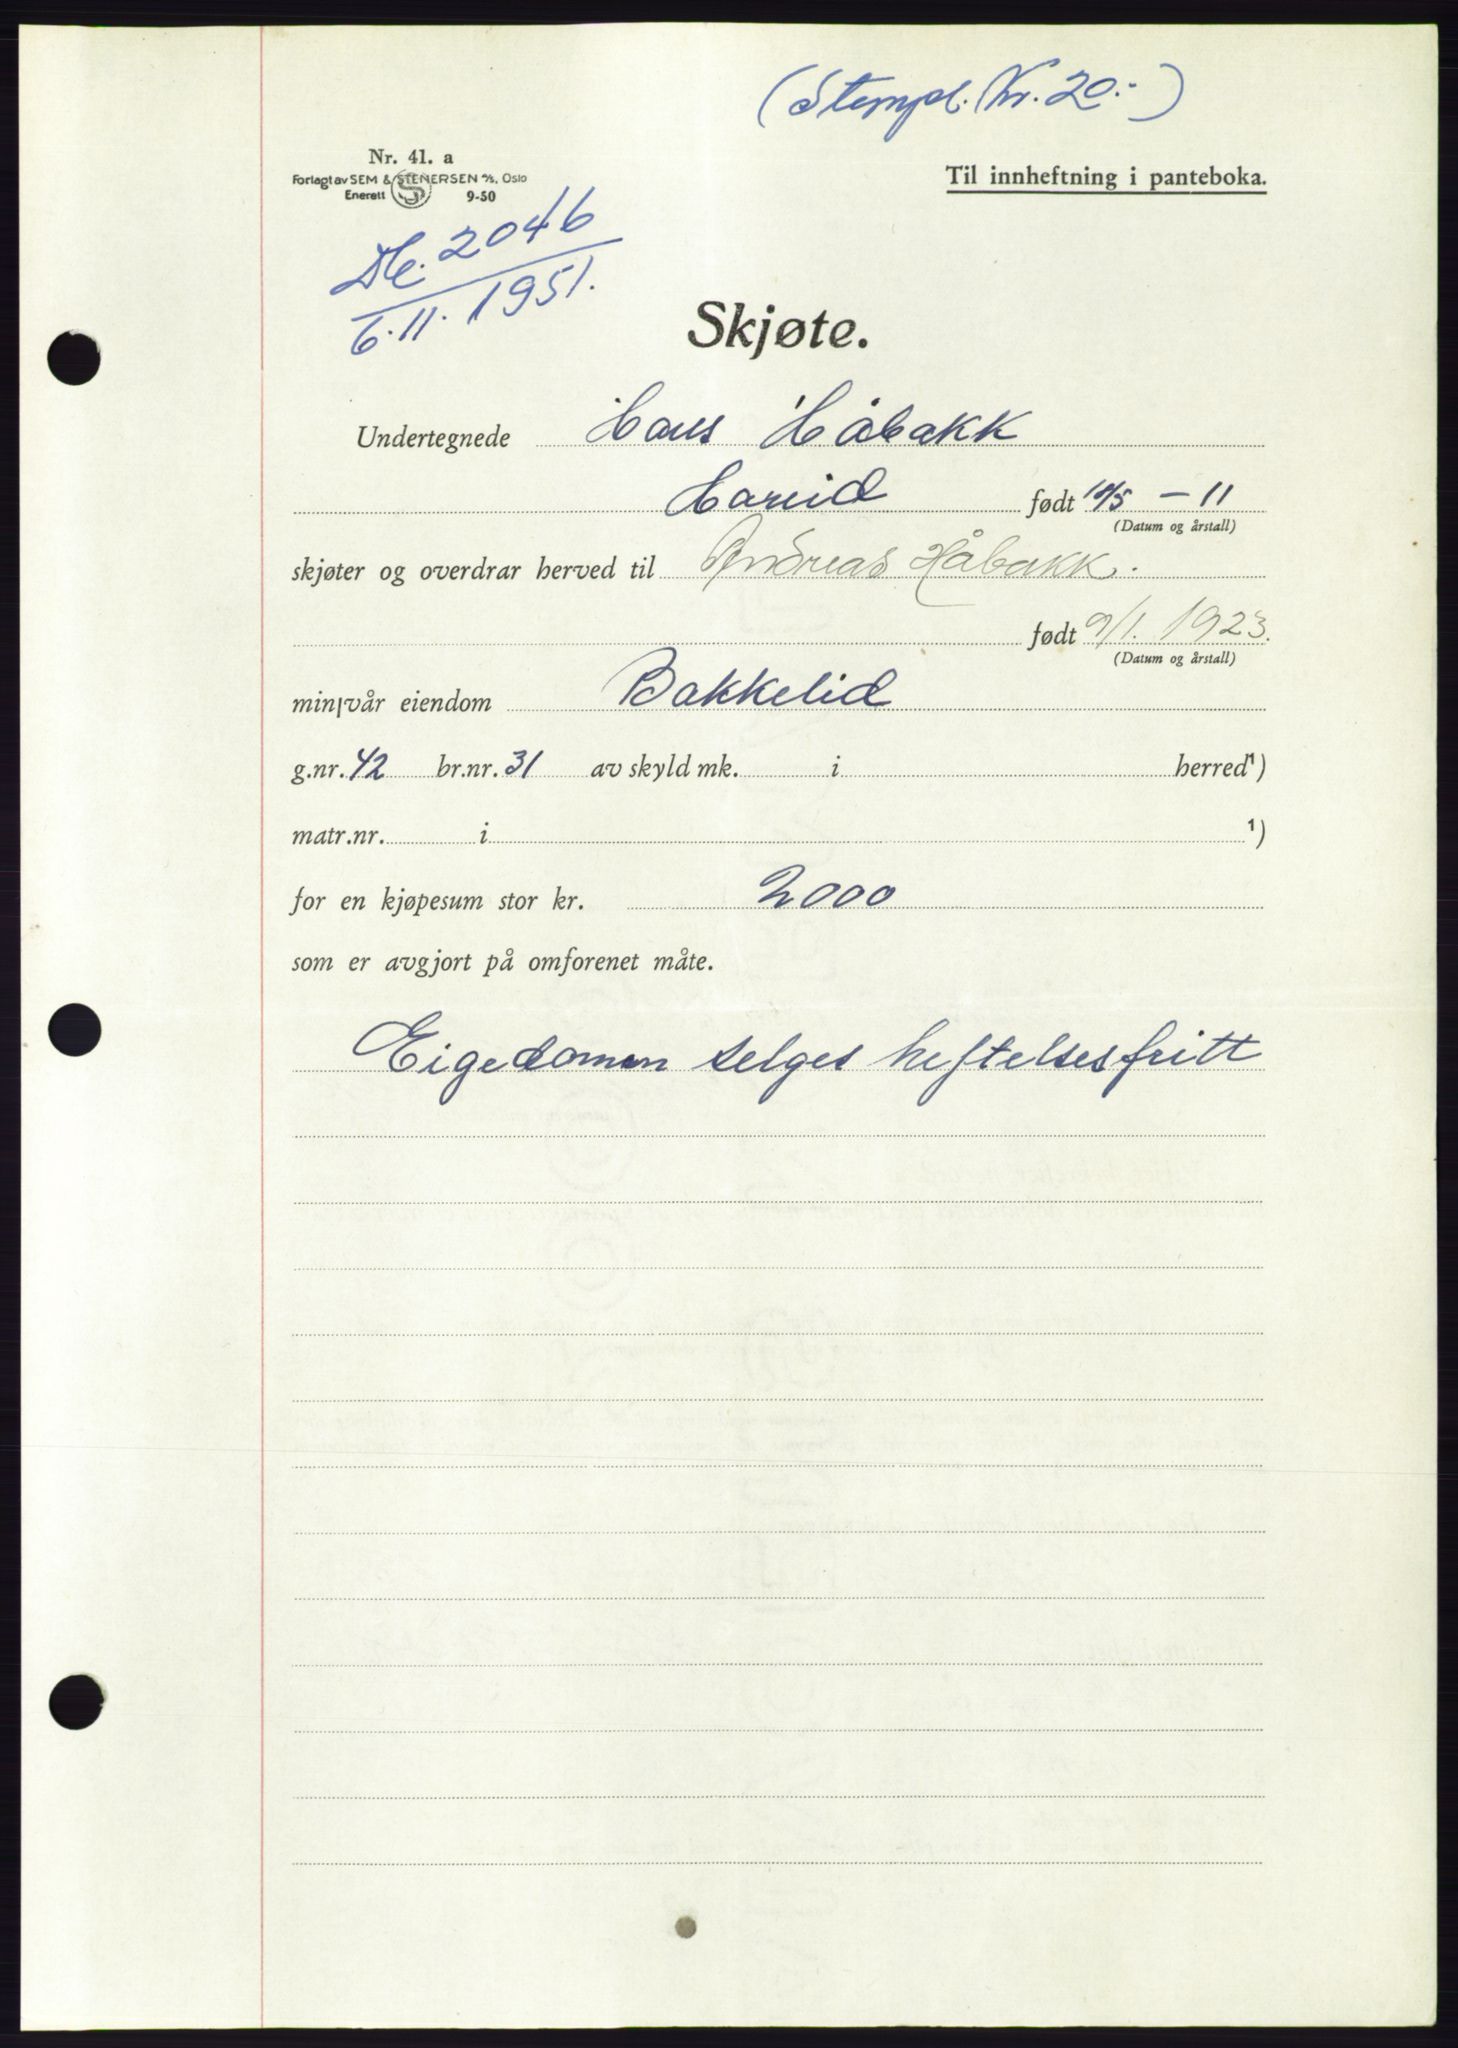 (Stempl. Kr. 20.-)
Nr. 41. a
Forlagt av SEM & STENERSEN A/S, Oslo
Enerett 9-50
Til innheftning i panteboka.
2046
6.11.1951.
Skjøte.
Undertegnede Hans Håbakk
Hareid født 10/5 - 11
(Datum og årstall)
skjøter og overdrar herved til Andreas Håbakk.
født 9/1. 1923.
(Datum og årstall)
min/vår eiendom Bakkelid
g.nr. 42 br.nr. 31 av skyld mk. i herred¹)
matr.nr. i ¹)
for en kjøpesum stor kr. 2000
som er avgjort på omforenet måte.
Eigedomen selges heftelsesfritt